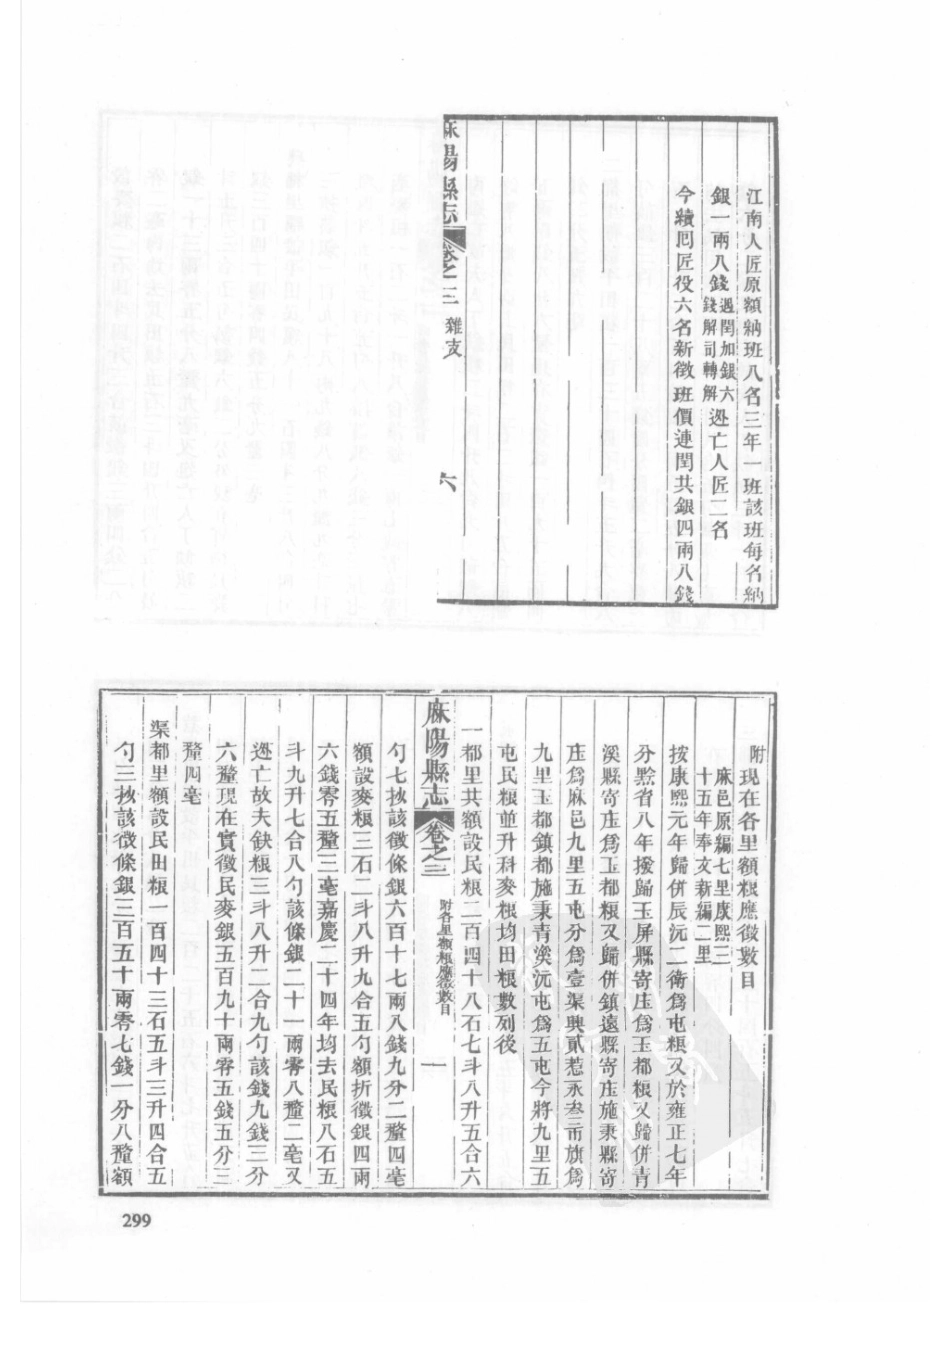 江南人匠原額納班八名三年一班該班每名納
銀一兩八錢遇閏加銀六錢解司轉解逃亡人匠二名
今續囘匠役六名新徵班價連閏共銀四兩八錢
麻陽縣志 卷之三 雜支 六
附現在各里額粮應徵數目
麻邑原編七里康熙三
十五年奉文新編二里
按康熙元年歸併辰沅二衛爲屯粮又於雍正七年
分黔省八年撥歸玉屏縣寄庄爲玉都粮又歸併靑
溪縣寄庄爲玉都粮又歸併鎮遠縣寄庄施秉縣寄
庄爲麻邑九里五屯分爲壹渠興貳惹永叁市旗爲
九里玉都鎮都施秉青溪沅屯爲五屯今將九里五
屯民粮並升科麥粮均田粮數列後
一都里共額設民粮二百四十八石七斗八升五合六
麻陽縣志 卷之三 附各里額粮應徵數目 一
勺七抄該徵條銀六百十七兩八錢九分二釐四毫
額設麥粮三石二斗八升九合五勺額折徵銀四兩
六錢零五釐三毫嘉慶二十四年均去民粮八石五
斗九升七合八勺該條銀二十一兩零八釐二毫又
逃亡故夫缺粮三斗八升二合九勺該錢九錢三分
六釐現在實徵民麥銀五百九十兩零五錢五分三
釐四毫
渠都里額設民田粮一百四十三石五斗三升四合五
勺三抄該徵條銀三百五十兩零七錢一分八釐額
299